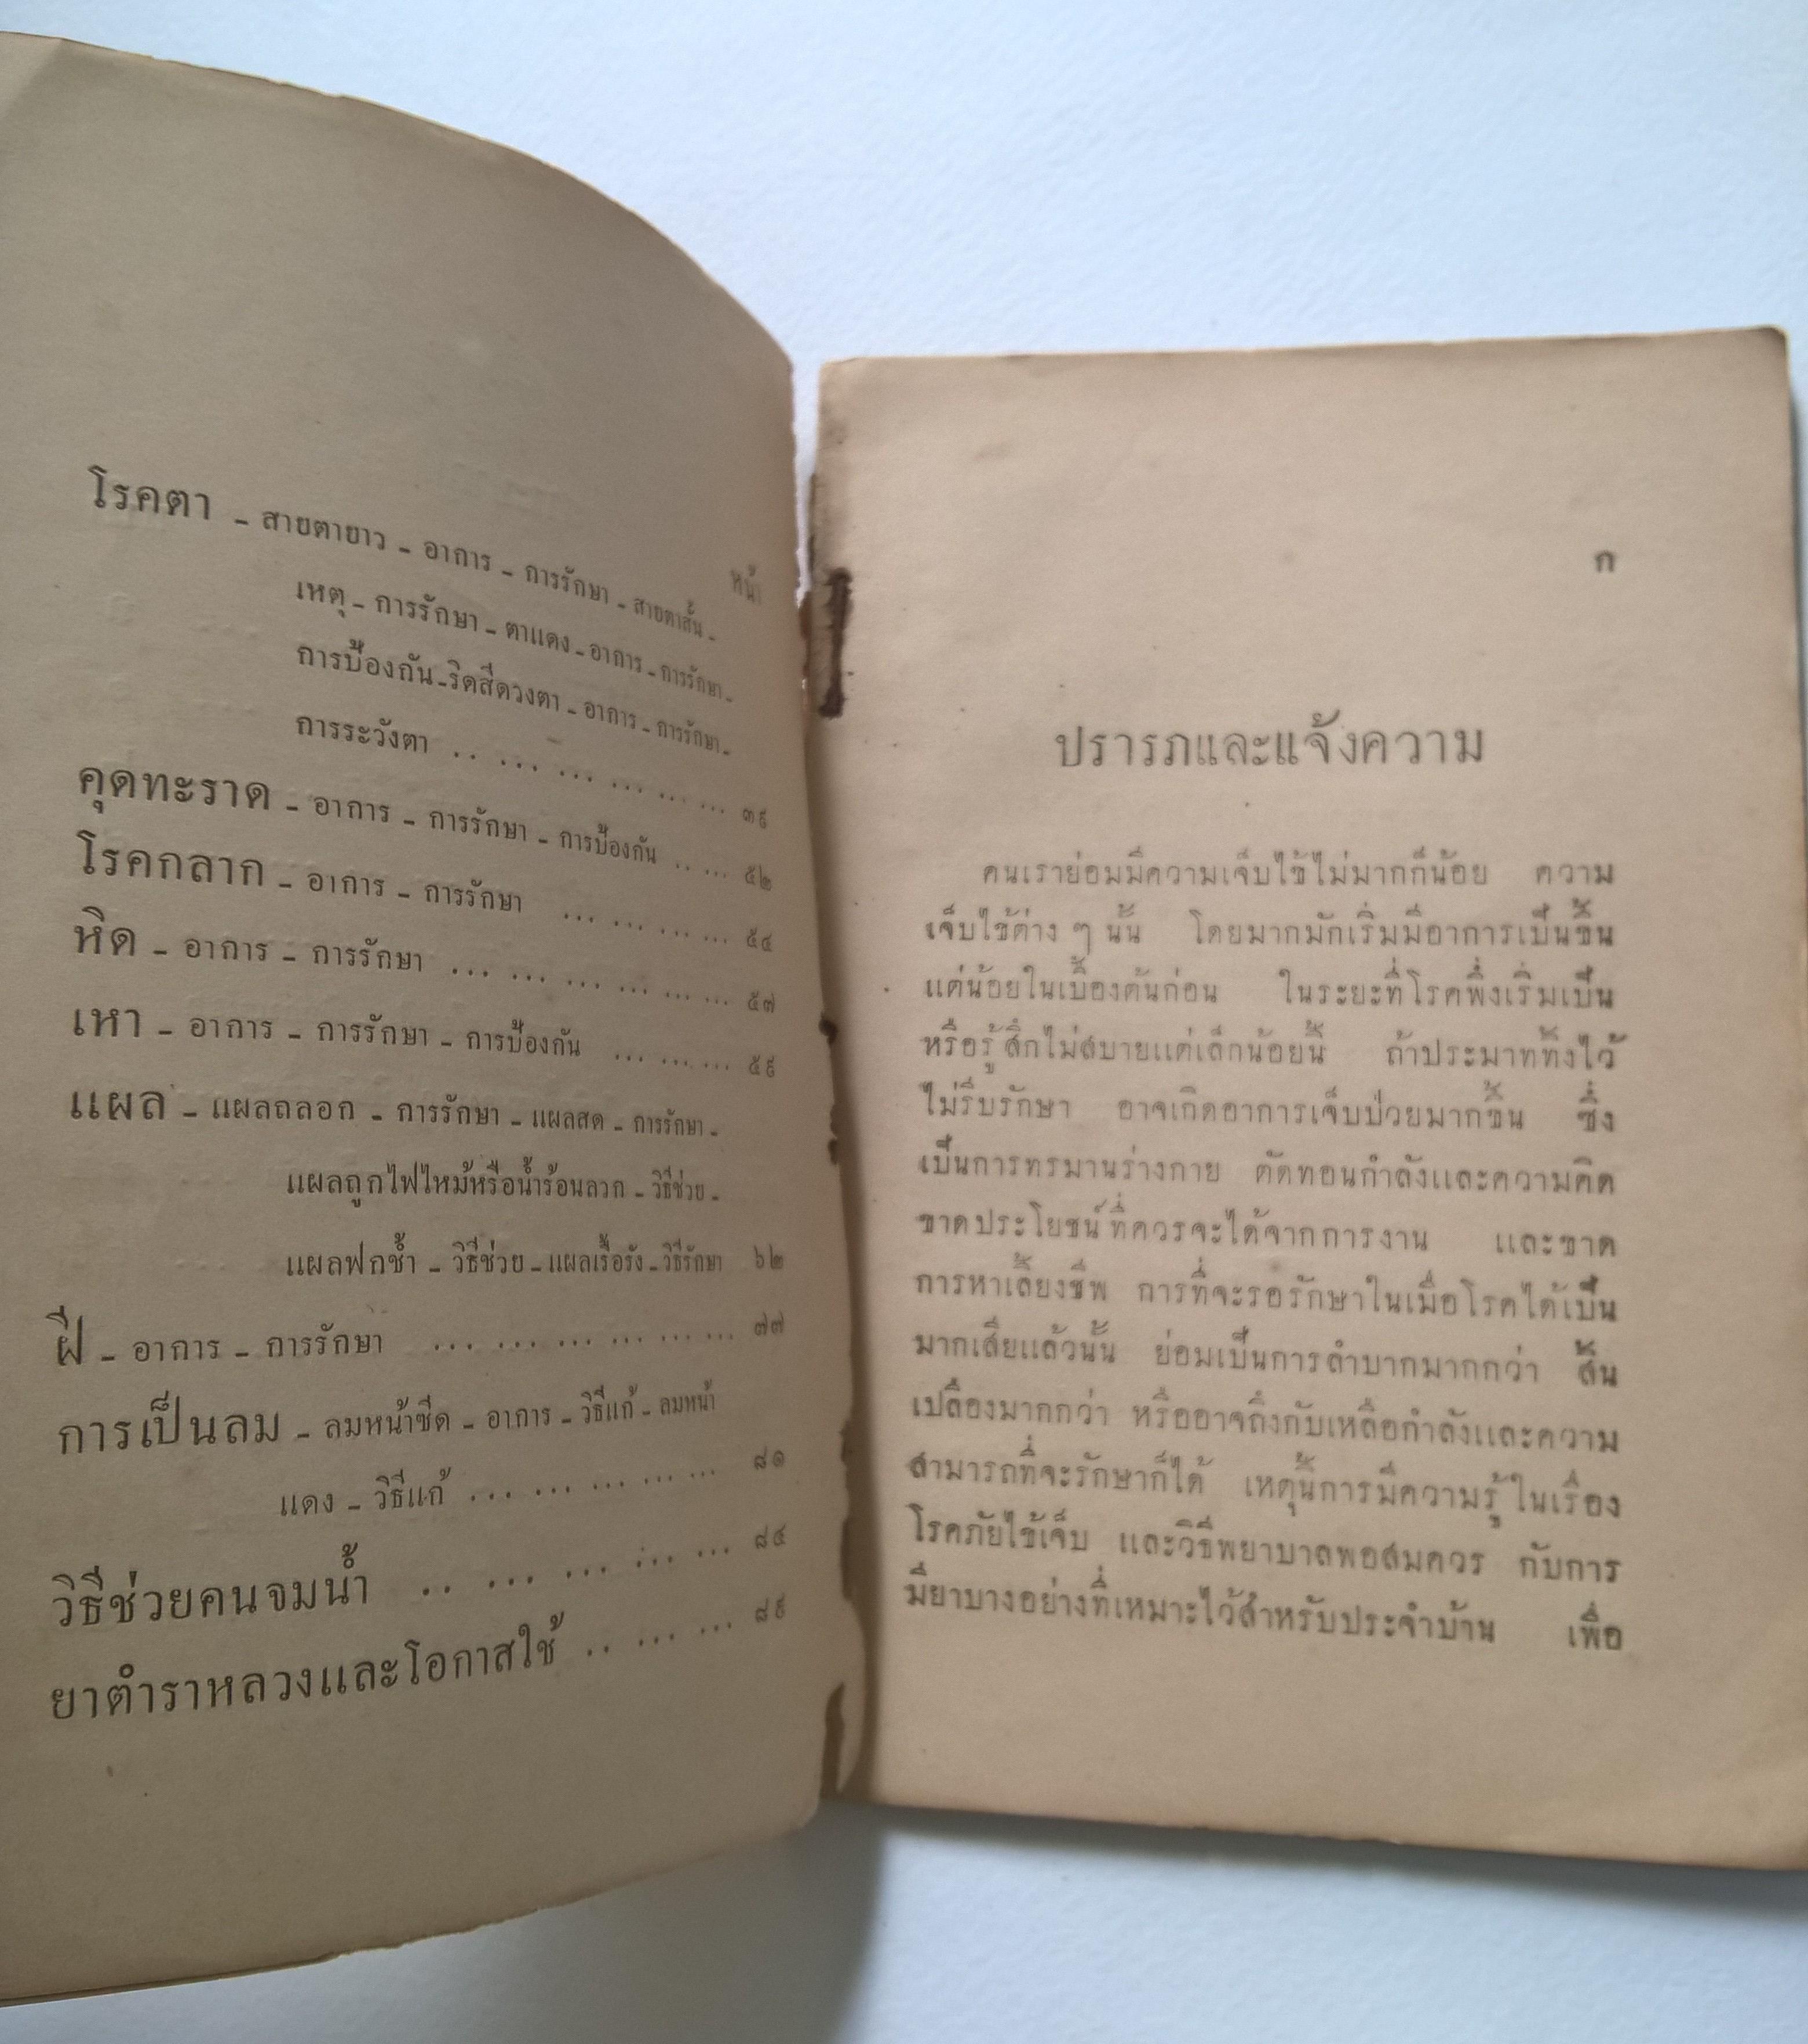 หน้า
โรคตา - สายตายาว - อาการ - การรักษา - สายตาสั้น -
เหตุ - การรักษา - ตาแดง - อาการ - การรักษา -
การป้องกัน - ริดสีดวงตา - อาการ - การรักษา -
การระวังตา .. ... ... ... ... ... ๓๙
คุดทะราด - อาการ - การรักษา - การป้องกัน .. ... ๕๒
โรคกลาก - อาการ - การรักษา ... ... ... ... ๕๔
หิด - อาการ - การรักษา ... ... ... ... ... ... ๕๗
เหา - อาการ - การรักษา - การป้องกัน ... ... ... ๕๙
แผล - แผลถลอก - การรักษา - แผลสด - การรักษา -
แผลถูกไฟไหม้หรือน้ำร้อนลวก - วิธีช่วย -
แผลฟกช้ำ - วิธีช่วย - แผลเรื้อรัง - วิธีรักษา ๖๒
ฝี - อาการ - การรักษา ... ... ... ... ... ... ๗๗
การเป็นลม - ลมหน้าซีด - อาการ - วิธีแก้ - ลมหน้า
แดง - วิธีแก้ ... ... ... ... ... ๘๑
วิธีช่วยคนจมน้ำ .. ... ... ... ... ๘๔
ยาตำราหลวงและโอกาสใช้ .. ... ... ๘๙
ก
ปรารภและแจ้งความ
คนเราย่อมมีความเจ็บไข้ไม่มากก็น้อย ความ
เจ็บไข้ต่าง ๆ นั้น โดยมากมักเริ่มมีอาการเป็นขึ้น
แต่น้อยในเบื้องต้นก่อน ในระยะที่โรคพึ่งเริ่มเป็น
หรือรู้สึกไม่สบายแต่เล็กน้อยนี้ ถ้าประมาททิ้งไว้
ไม่รีบรักษา อาจเกิดอาการเจ็บป่วยมากขึ้น ซึ่ง
เป็นการทรมานร่างกาย ตัดทอนกำลังและความคิด
ขาดประโยชน์ที่ควรจะได้จากการงาน และขาด
การหาเลี้ยงชีพ การที่จะรอรักษาในเมื่อโรคได้เป็น
มากเสียแล้วนั้น ย่อมเป็นการลำบากมากกว่า สิ้น
เปลืองมากกว่า หรืออาจถึงกับเหลือกำลังและความ
สามารถที่จะรักษาก็ได้ เหตุนี้การมีความรู้ในเรื่อง
โรคภัยไข้เจ็บ และวิธีพยาบาลพอสมควร กับการ
มียาบางอย่างที่เหมาะไว้สำหรับประจำบ้าน เพื่อ